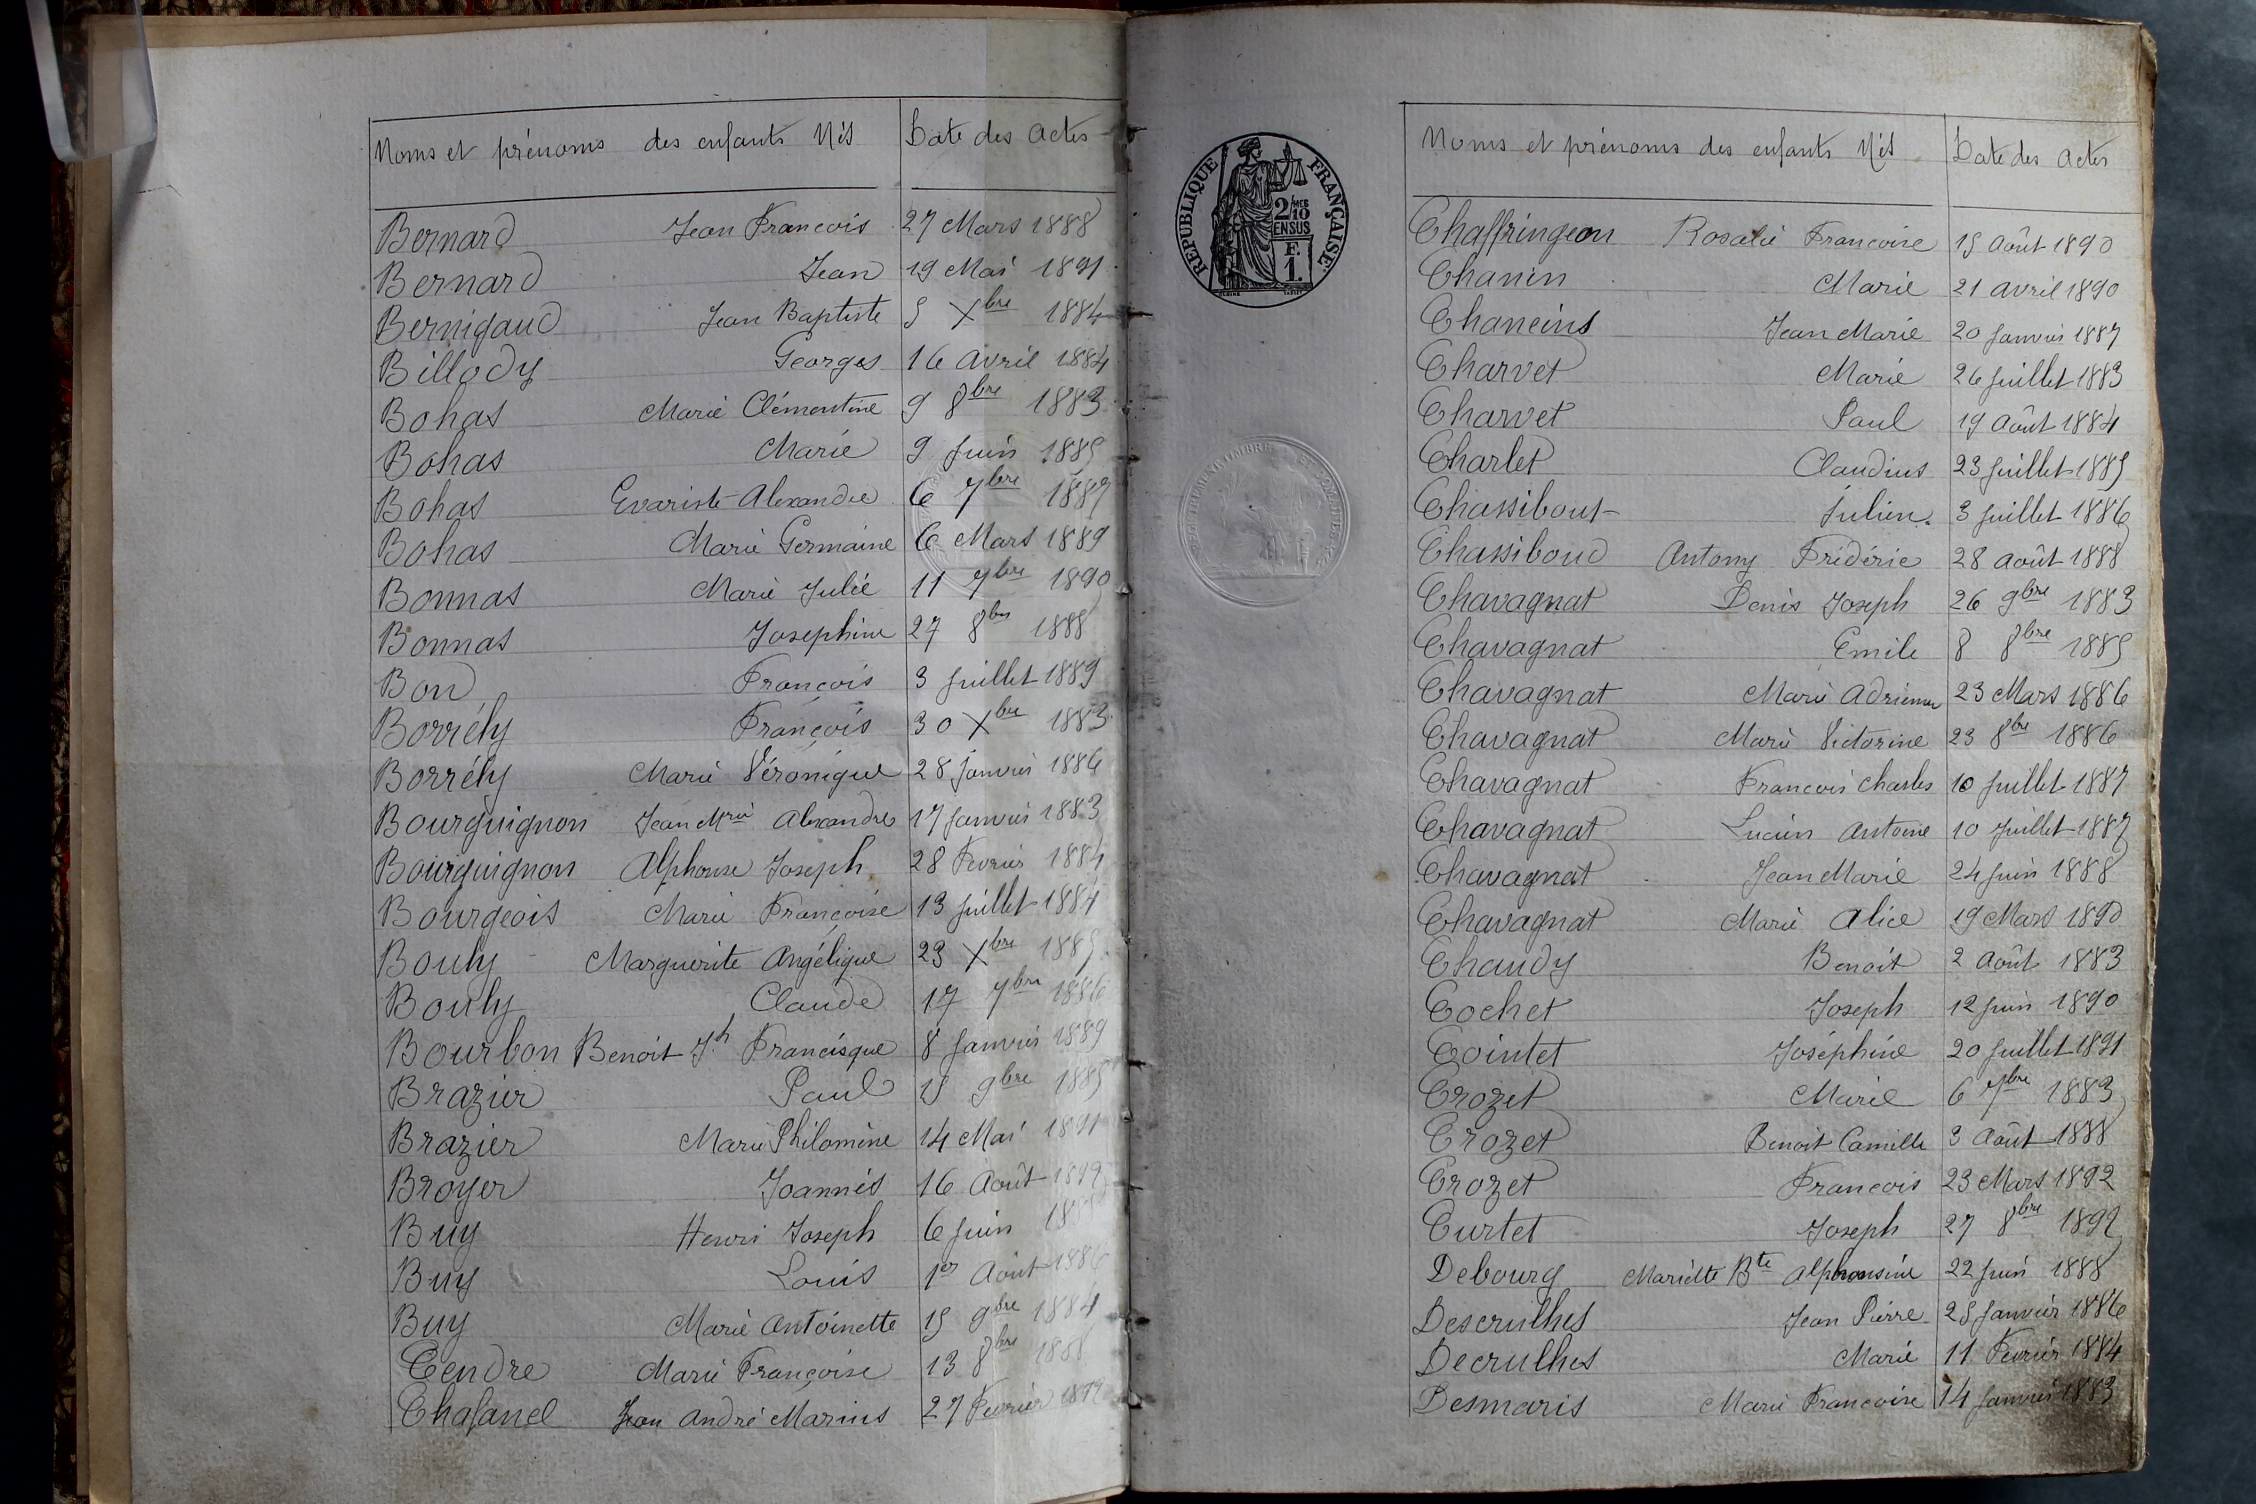 Noms et prénoms des enfants Nés Date des actes
Bernard Jean François 27 Mars 1888
Bernard Jean 19 Mai 1891
Bernigaud Jean Baptiste 5 Xbre 1884
Billody Georges 16 avril 1884
Bohas Marie Clémentine 9 8bre 1883
Bohas Marie 9 Juin 1885
Bohas Evariste Alexandre 6 7bre 1887
Bohas Marie Germaine 6 Mars 1889
Bonnas Marie Julie 11 7bre 1890
Bonnas Josephine 27 8bre 1888
Bon François 3 Juillet 1889
Borrély François 30 Xbre 1883
Borrély Marie Véronique 28 janvier 1886
Bourguignon Jean Mrie Alexandre 17 Janvier 1883
Bourguignon Alphonse Joseph 28 Fevrier 1884
Bourgeois Marie Françoise 13 Juillet 1884
Bouly Marguerite Angélique 23 Xbre 1885
Bouly Claude 17 7bre 1886
Bourbon Benoit Jh Francisque 8 Janvier 1889
Brazier Paul 15 9bre 1885
Brazier Marie Philomène 14 Mai 1891
Broyer Joannès 16 Août
Buy Henri Joseph 6 Juin
Buy Louis 1er Août 1886
Buy Marie Antoinette 15 9bre 1884
Cendre Marie Françoise 13 8bre 1888
Chafanel Jean André Marius 27 Fevrier
REPUBLIQUE FRANÇAISE
2/10 MES
EN SUS
F.
1.
Noms et prénoms des enfants Nés Date des actes
Chaffringeon Rosalie Francoise 15 Août 1890
Chanin Marie 21 avril 1890
Chaneins Jean Marie 20 Janvier 1887
Charvet Marie 26 Juillet 1883
Charvet Paul 19 Août 1884
Charlet Claudius 23 Juillet 1885
Chassibout Julien 3 Juillet 1886
Chassiboud Antony Frédéric 28 Août 1888
Chavagnat Denis Joseph 26 9bre 1883
Chavagnat Emile 8 8bre 1885
Chavagnat Marie Adrienne 23 Mars 1886
Chavagnat Marie Victorine 23 8bre 1886
Chavagnat François Charles 10 Juillet 1887
Chavagnat Lucien Antoine 10 Juillet 1887
Chavagnat Jean Marie 24 Juin 1888
Chavagnat Marie Alice 19 Mars 1890
Chaudy Benoit 2 Août 1883
Cochet Joseph 12 Juin 1890
Cointet Joséphine 20 Juillet 1891
Crozet Marie 6 7bre 1883
Crozet Benoit Camille 3 Août 1888
Crozet Francois 23 Mars 1892
Curtet Joseph 27 8bre 1892
Debourg Mariette Bte Alphonsine 22 Juin 1888
Descrulhes Jean Pierre 25 Janvier 1886
Decrulhes Marie 11 Fevrier 1884
Desmaris Marie Francoise 14 Janvier 1883